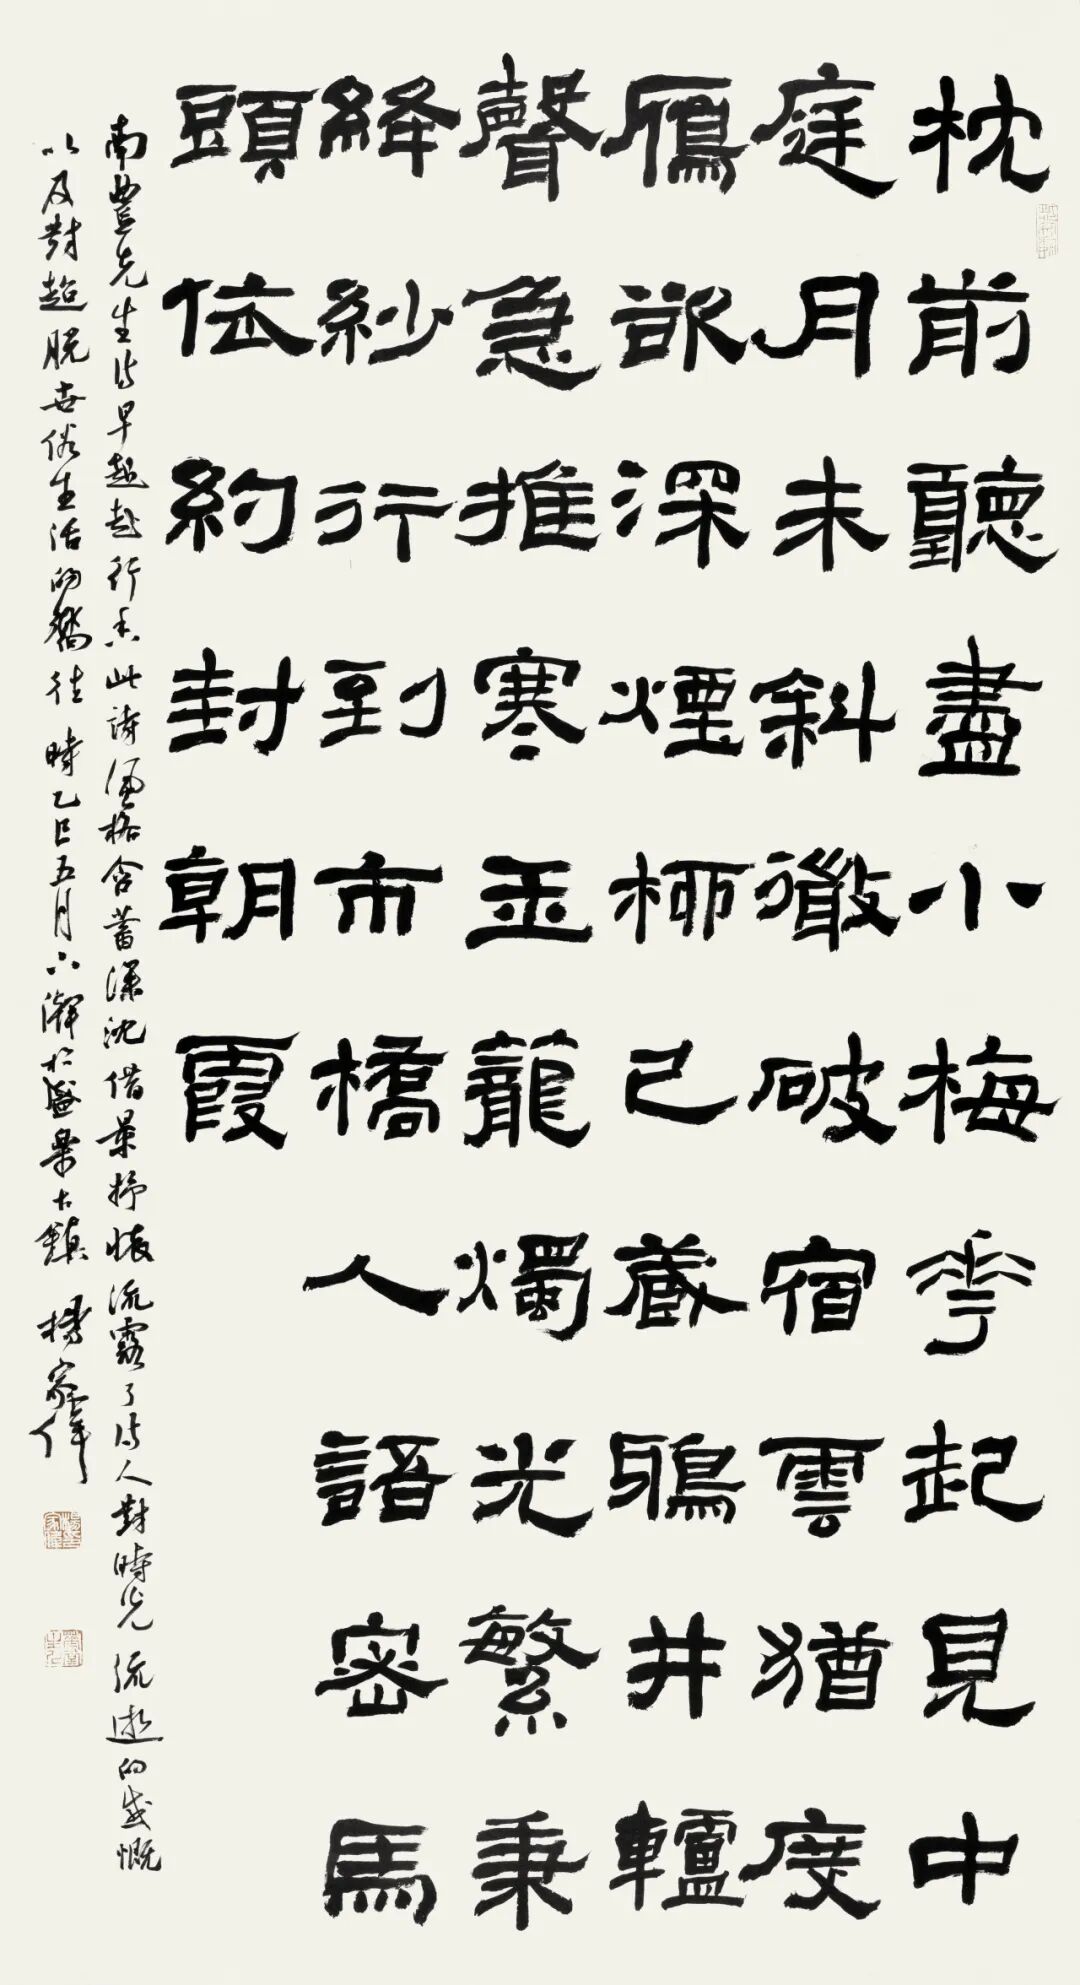 枕前聽盡小梅花起見中
庭月未斜微破宿雲猶度
鴈欲深煙柳已藏鵶井轤
聲急推寒玉籠燭光繁秉
絳紗行到市橋人語密馬
頭依約封朝霞
南豐先生詩早起赴行香此詩風格含蓄深沈借景抒懷流露了詩人對時光流逝的感慨
以及對超脱世俗生活的嚮往時乙巳五月六澣於盛泉古鎮楊家偉